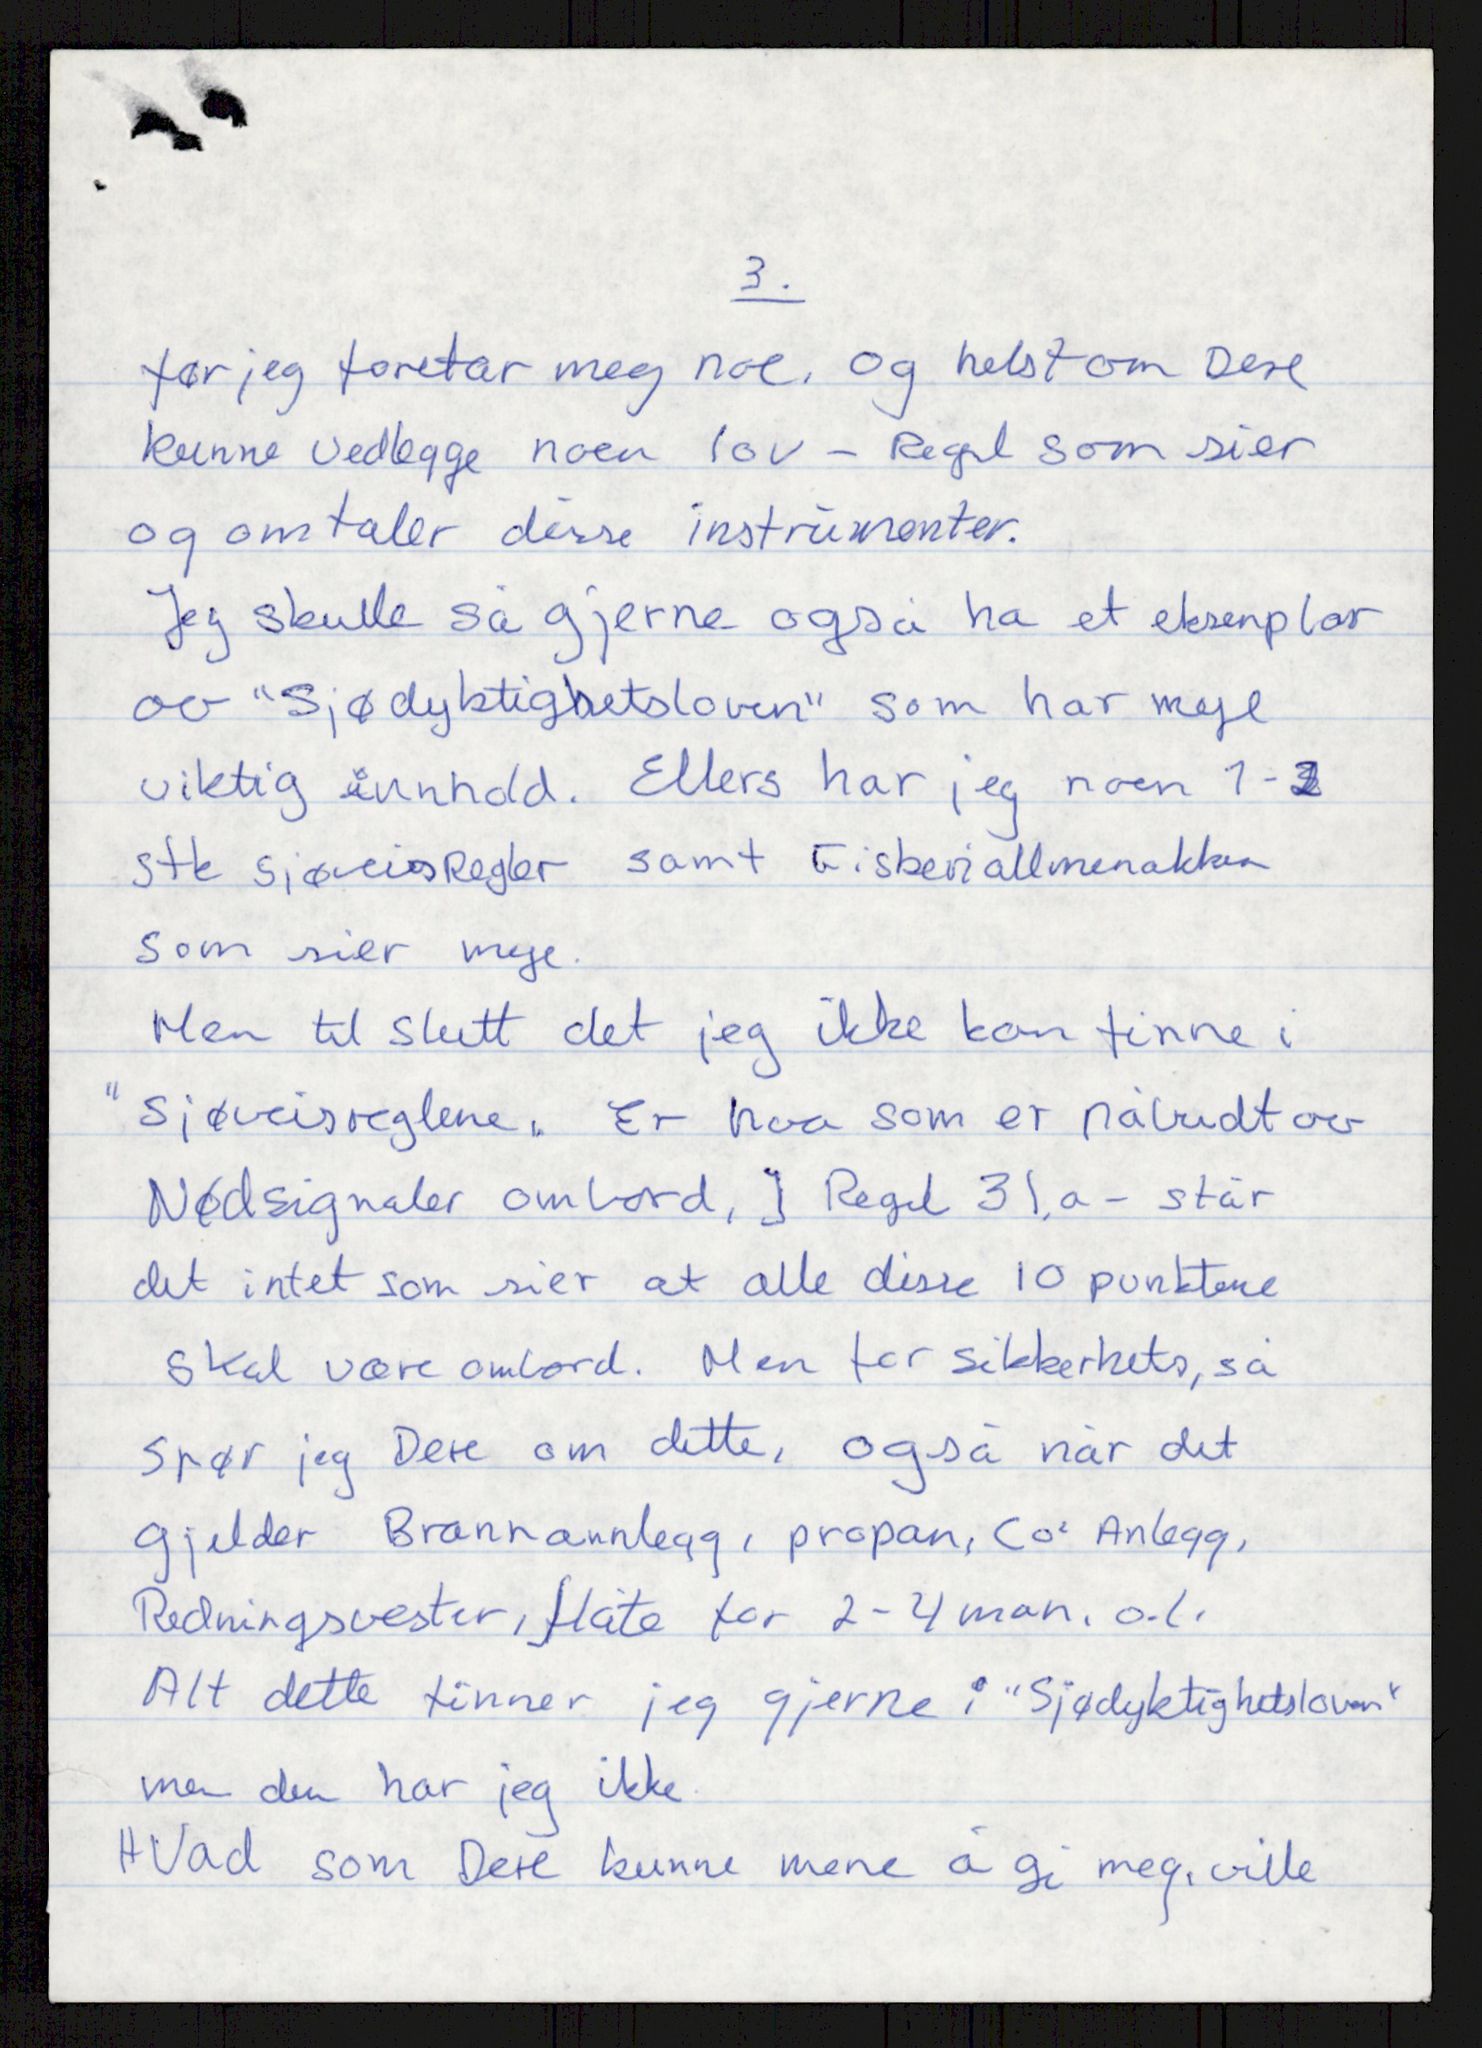 3.
før jeg foretar meg noe, og helst om Dere
kunne vedlegge noen lov - Regel som sier
og omtaler disse instrumenter.
Jeg skulle så gjerne også ha et eksenplar
av "Sjødyktighetsloven" som har mye
viktig innhold. Ellers har jeg noen 1-2
stk sjøveisRegler samt Fiskeriallmenakken
som sier mye.
Men til slutt det jeg ikke kan finne i
"Sjøveisreglene„ Er hva som er påbudt av
Nødsignaler ombord, I Regel 31,a - står
det intet som sier at alle disse 10 punktene
skal være ombord. Men for sikkerhets, så
spør jeg Dere om dette, også når det
gjelder Brannannlegg, propan, Co² Anlegg,
Redningsvester, flåte for 2-4 man. o.l.
Alt dette finner jeg gjerne i "Sjødyktighetsloven"
men den har jeg ikke.
HVad som Dere kunne mene å gi meg, ville